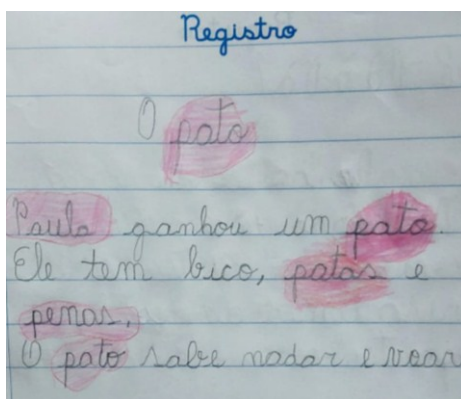 Registro
O pato
Paula ganhou um pato.
Ele tem bico, patas e
penas.
O pato sabe nadar e voar